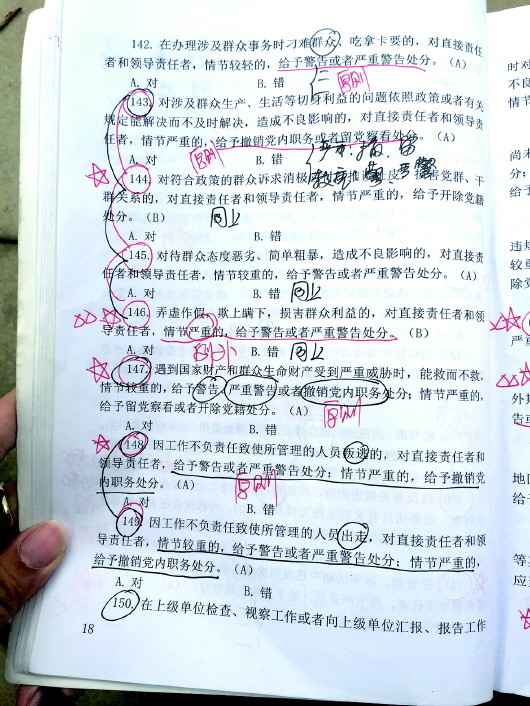 142. 在办理涉及群众事务时刁难群众、吃拿卡要的，对直接责任
者和领导责任者，情节较轻的，给予警告或者严重警告处分。（A）
A. 对 B. 错
143. 对涉及群众生产、生活等切身利益的问题依照政策或者有关
规定能解决而不及时解决，造成不良影响的，对直接责任者和领导责
任者，情节严重的，给予撤销党内职务或者留党察看处分。（A）
A. 对 B. 错
144. 对符合政策的群众诉求消极应付、推诿扯皮，损害党群、干
群关系的，对直接责任者和领导责任者，情节严重的，给予开除党籍
处分。（B） 同上
A. 对 B. 错
145. 对待群众态度恶劣、简单粗暴，造成不良影响的，对直接责
任者和领导责任者，情节较重的，给予警告或者严重警告处分。（A）
A. 对 B. 错 同上
146. 弄虚作假，欺上瞒下，损害群众利益的，对直接责任者和领
导责任者，情节严重的，给予警告或者严重警告处分。（B）
A. 对 B. 错 同上
147. 遇到国家财产和群众生命财产受到严重威胁时，能救而不救，
情节较重的，给予警告、严重警告或者撤销党内职务处分；情节严重的，
给予留党察看或者开除党籍处分。（A）
A. 对 B. 错
148. 因工作不负责任致使所管理的人员叛逃的，对直接责任者和
领导责任者，给予警告或者严重警告处分；情节严重的，给予撤销党
内职务处分。（A）
A. 对 B. 错
149. 因工作不负责任致使所管理的人员出走，对直接责任者和领
导责任者，情节较重的，给予警告或者严重警告处分；情节严重的，
给予撤销党内职务处分。（A）
A. 对 B. 错
150. 在上级单位检查、视察工作或者向上级单位汇报、报告工作
18